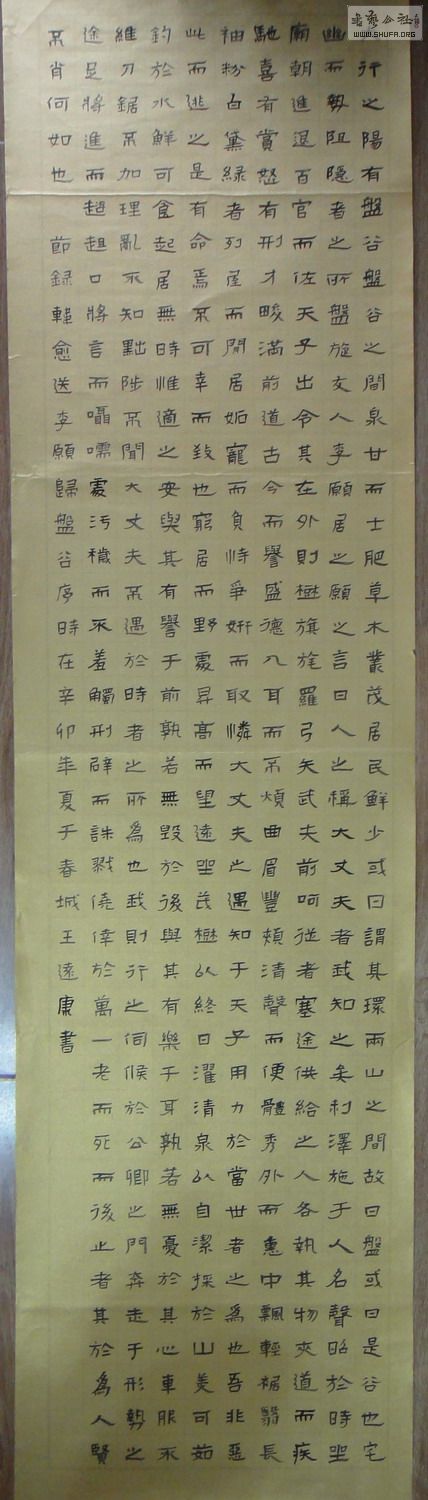 行之陽有盤谷盤谷之間泉甘而土肥草木叢茂居民鮮少或曰謂其環兩山之間故曰盤或曰是谷也宅
幽而勢阻隱者之所盤旋友人李願居之願之言曰人之稱大丈夫者我知之矣利澤施于人名聲昭於時坐
廟朝進退百官而佐天子出令其在外則樹旗旄羅弓矢武夫前呵從者塞途供給之人各執其物夾道而疾
馳喜有賞怒有刑才畯滿前道古今而譽盛德入耳而不煩曲眉豐頰清聲而便體秀外而惠中飄輕裾翳長
袖粉白黛綠者列屋而閒居妬寵而負恃爭妍而取憐大丈夫之遇知于天子用力於當世者之為也吾非惡
此而逃之是有命焉不可幸而致也窮居而野處昇高而望遠坐茂樹以終日濯清泉以自潔採於山美可茹
釣於水鮮可食起居無時惟適之安與其有譽于前孰若無毀於後與其有樂于身孰若無憂於其心車服不
維刀鋸不加理亂不知黜陟不聞大丈夫不遇於時者之所為也我則行之伺候於公卿之門奔走于形勢之
途足將進而趑趄口將言而囁嚅處污穢而不羞觸刑辟而誅戮僥倖於萬一老而死而後止者其於為人賢
不肖何如也 節録韓愈送李願歸盤谷序時在辛卯年夏于春城王遠康書
書藝公社
WWW.SHUFA.ORG